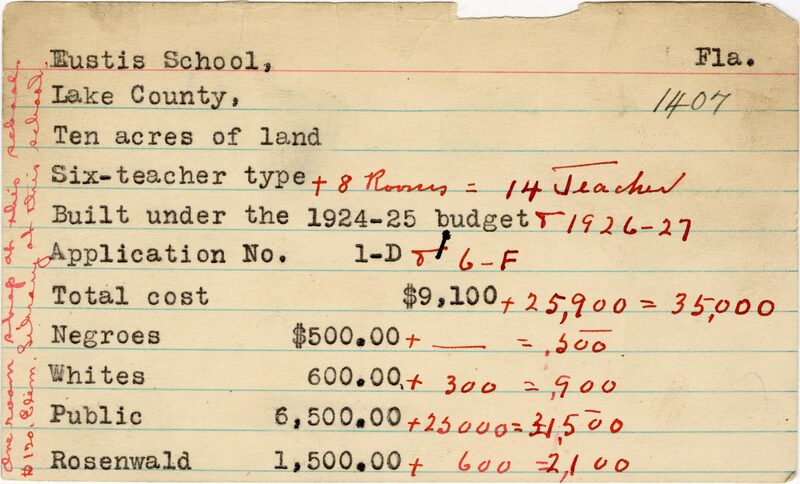 Eustis School, Fla.
Lake County, 1407
Ten acres of land
Six-teacher type + 8 Rooms = 14 Teacher
Built under the 1924-25 budget & 1926-27
Application No. 1-D & 6-F
Total cost $9,100 + 25,900 = 35,000
Negroes $500.00 + — = 500
Whites 600.00 + 300 = 900
Public 6,500.00 + 25000 = 31,500
Rosenwald 1,500.00 + 600 = 2,100
One room shop at this school.
$120. Elem. Library at this school.